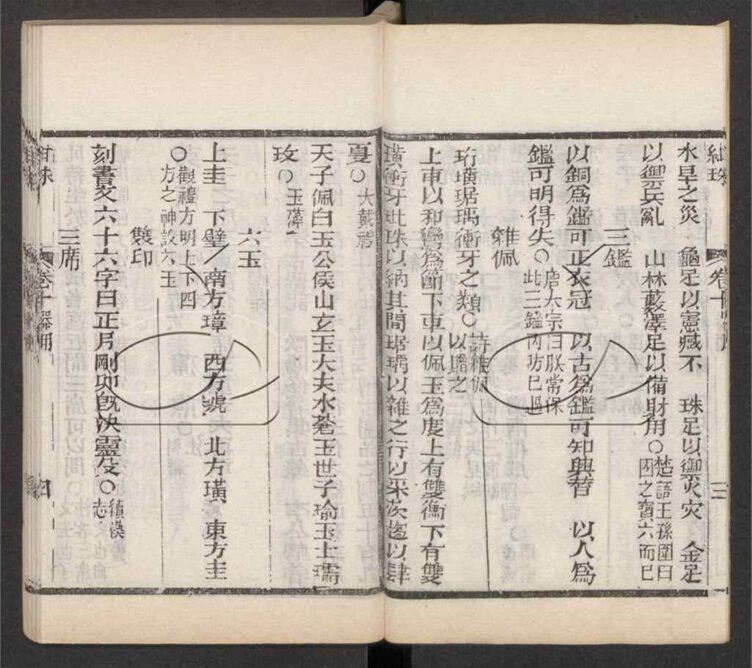 水旱之災　龜足以憲臧不　珠足以禦火灾　金足
以禦兵亂　山林藪澤足以備財用○楚語王孫圉曰國之寶六而巳
三鑑
以銅爲鑑可正衣冠　以古爲鑑可知興替　以人爲
鑑可明得失○唐太宗曰朕常保此三鑑內防巳過
雜佩
珩璜琚瑀衝牙之類○詩雜佩以贈之
上車以和鸞爲節下車以佩玉爲度上有雙衡下有雙
璜衝牙玭珠以納其間琚瑀以雜之行以采茨趨以肆
夏○大戴禮
天子佩白玉公侯山玄玉大夫水蒼玉世子瑜玉士瓀
玟○玉藻
六玉
上圭　下璧　南方璋　西方號　北方璜　東方圭
○覲禮方明上下四方之神設六玉
製印
刻書文六十六字曰正月剛卯旣決靈殳○續漢志
三席
卷十器用
四